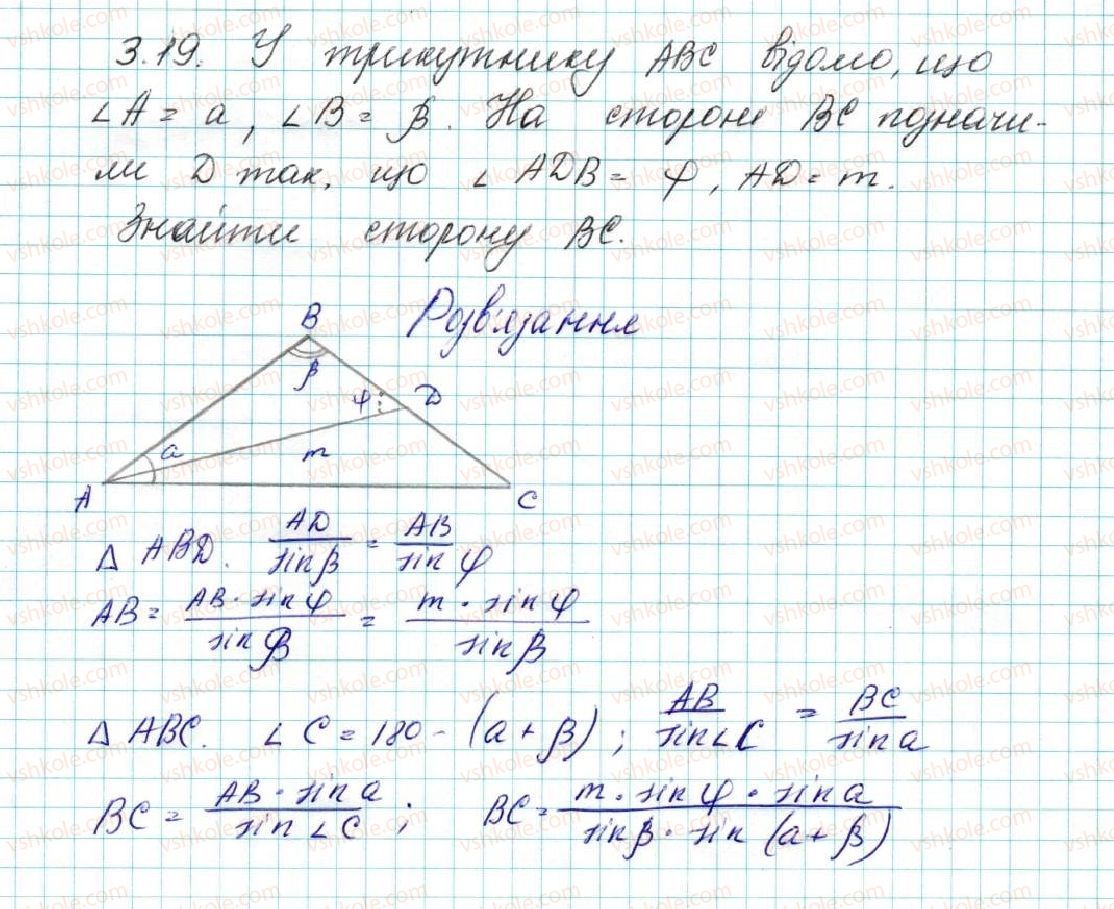 3.19. У трикутнику ABC відомо, що
∠A = a, ∠B = β. На стороні BC позначи-
ли D так, що ∠ADB = φ, AD = m.
Знайти сторону BC.
Розв'язання
B
β
φ
D
a
m
A
C
Δ ABD. AD/sinβ = AB/sin φ
AB = AB · sin φ/sin β = m · sin φ/sin β
Δ ABC. ∠C = 180 - (a + β); AB/sin∠C = BC/sin a
BC = AB · sin a/sin ∠C; BC = m · sin φ · sin a/sin β · sin (a + β)
vshkole.com